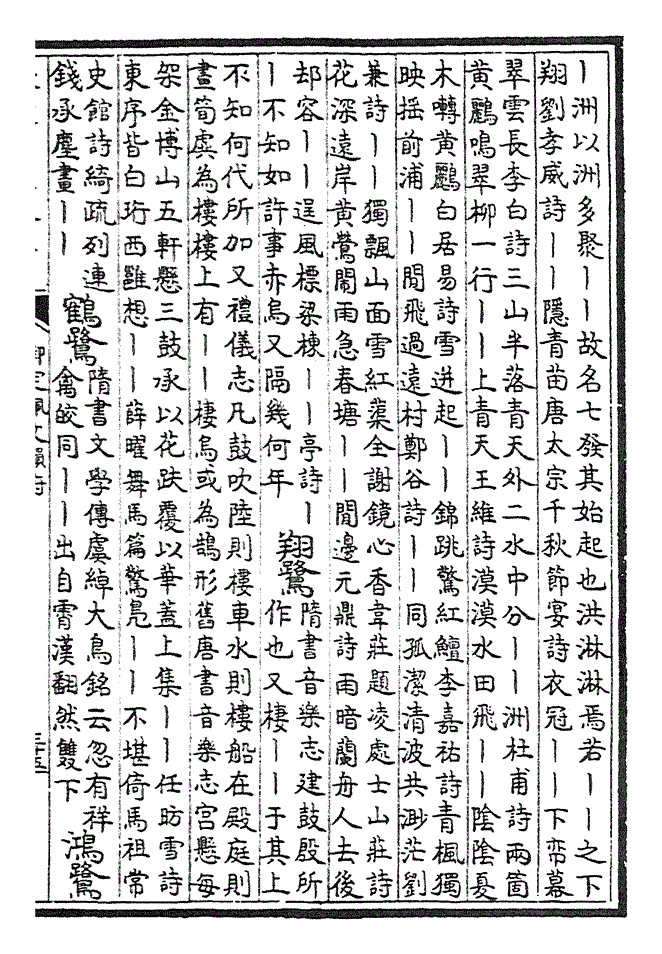 丨洲以洲多聚丨丨故名七發其始起也洪淋淋焉若丨丨之下
翔劉孝威詩丨丨隱青苗唐太宗千秋節宴詩衣冠丨丨下帟幕
翠雲長李白詩三山半落青天外二水中分丨丨洲杜甫詩兩箇
黃鸝鳴翠柳一行丨丨上青天王維詩漠漠水田飛丨丨陰陰夏
木囀黃鸝白居易詩雪迸起丨丨錦跳驚紅鱣李嘉祐詩青楓獨
映揺前浦丨丨閒飛過遠村鄭谷詩丨丨同孤潔清波共渺茫劉
兼詩丨丨獨飄山面雪紅蕖全謝鏡心香韋莊題凌處士山莊詩
花深遠岸黃鶯鬧雨急春塘丨丨閒邊元鼎詩雨暗蘭舟人去後
却容丨丨逞風標梁棟丨丨亭詩丨
丨不知如許事赤烏又隔幾何年
翔鷺
隋書音樂志建鼓殷所
作也又棲丨丨于其上
不知何代所加又禮儀志凡鼓吹陸則樓車水則樓船在殿庭則
畫筍虡為樓樓上有丨丨棲烏或為鵠形舊唐書音樂志宮懸每
架金博山五軒懸三鼓承以花趺覆以華蓋上集丨丨任昉雪詩
東序皆白珩西雝想丨丨薛曜舞馬篇驚鳧丨丨不堪儔馬祖常
史館詩綺疏列連
錢承塵畫丨丨
鶴鷺
隋書文學傳虞綽大鳥銘云忽有祥
禽皎同丨丨出自霄漢翻然雙下
鴻鷺
御定佩文韻府